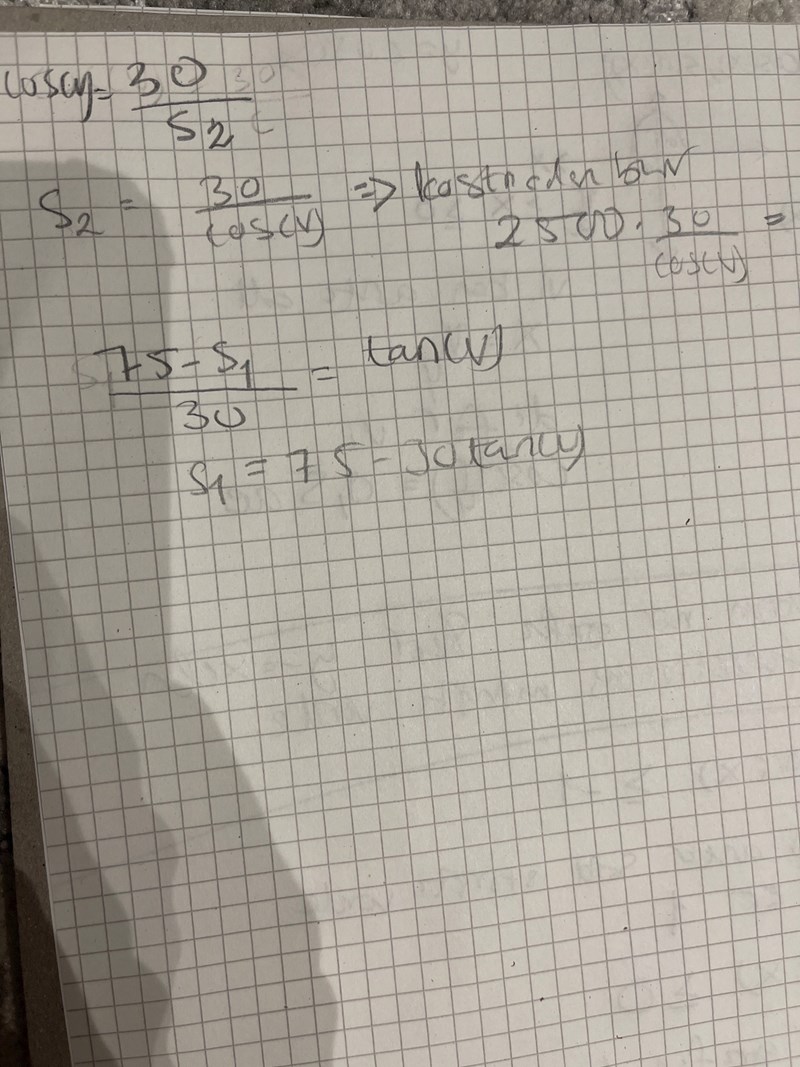 cos(v) = 30/S2
S2 = 30/cos(v) => kostnaden blir
2500 · 30/cos(v) =
75-S1/30 = tan(v)
S1 = 75-30tan(v)